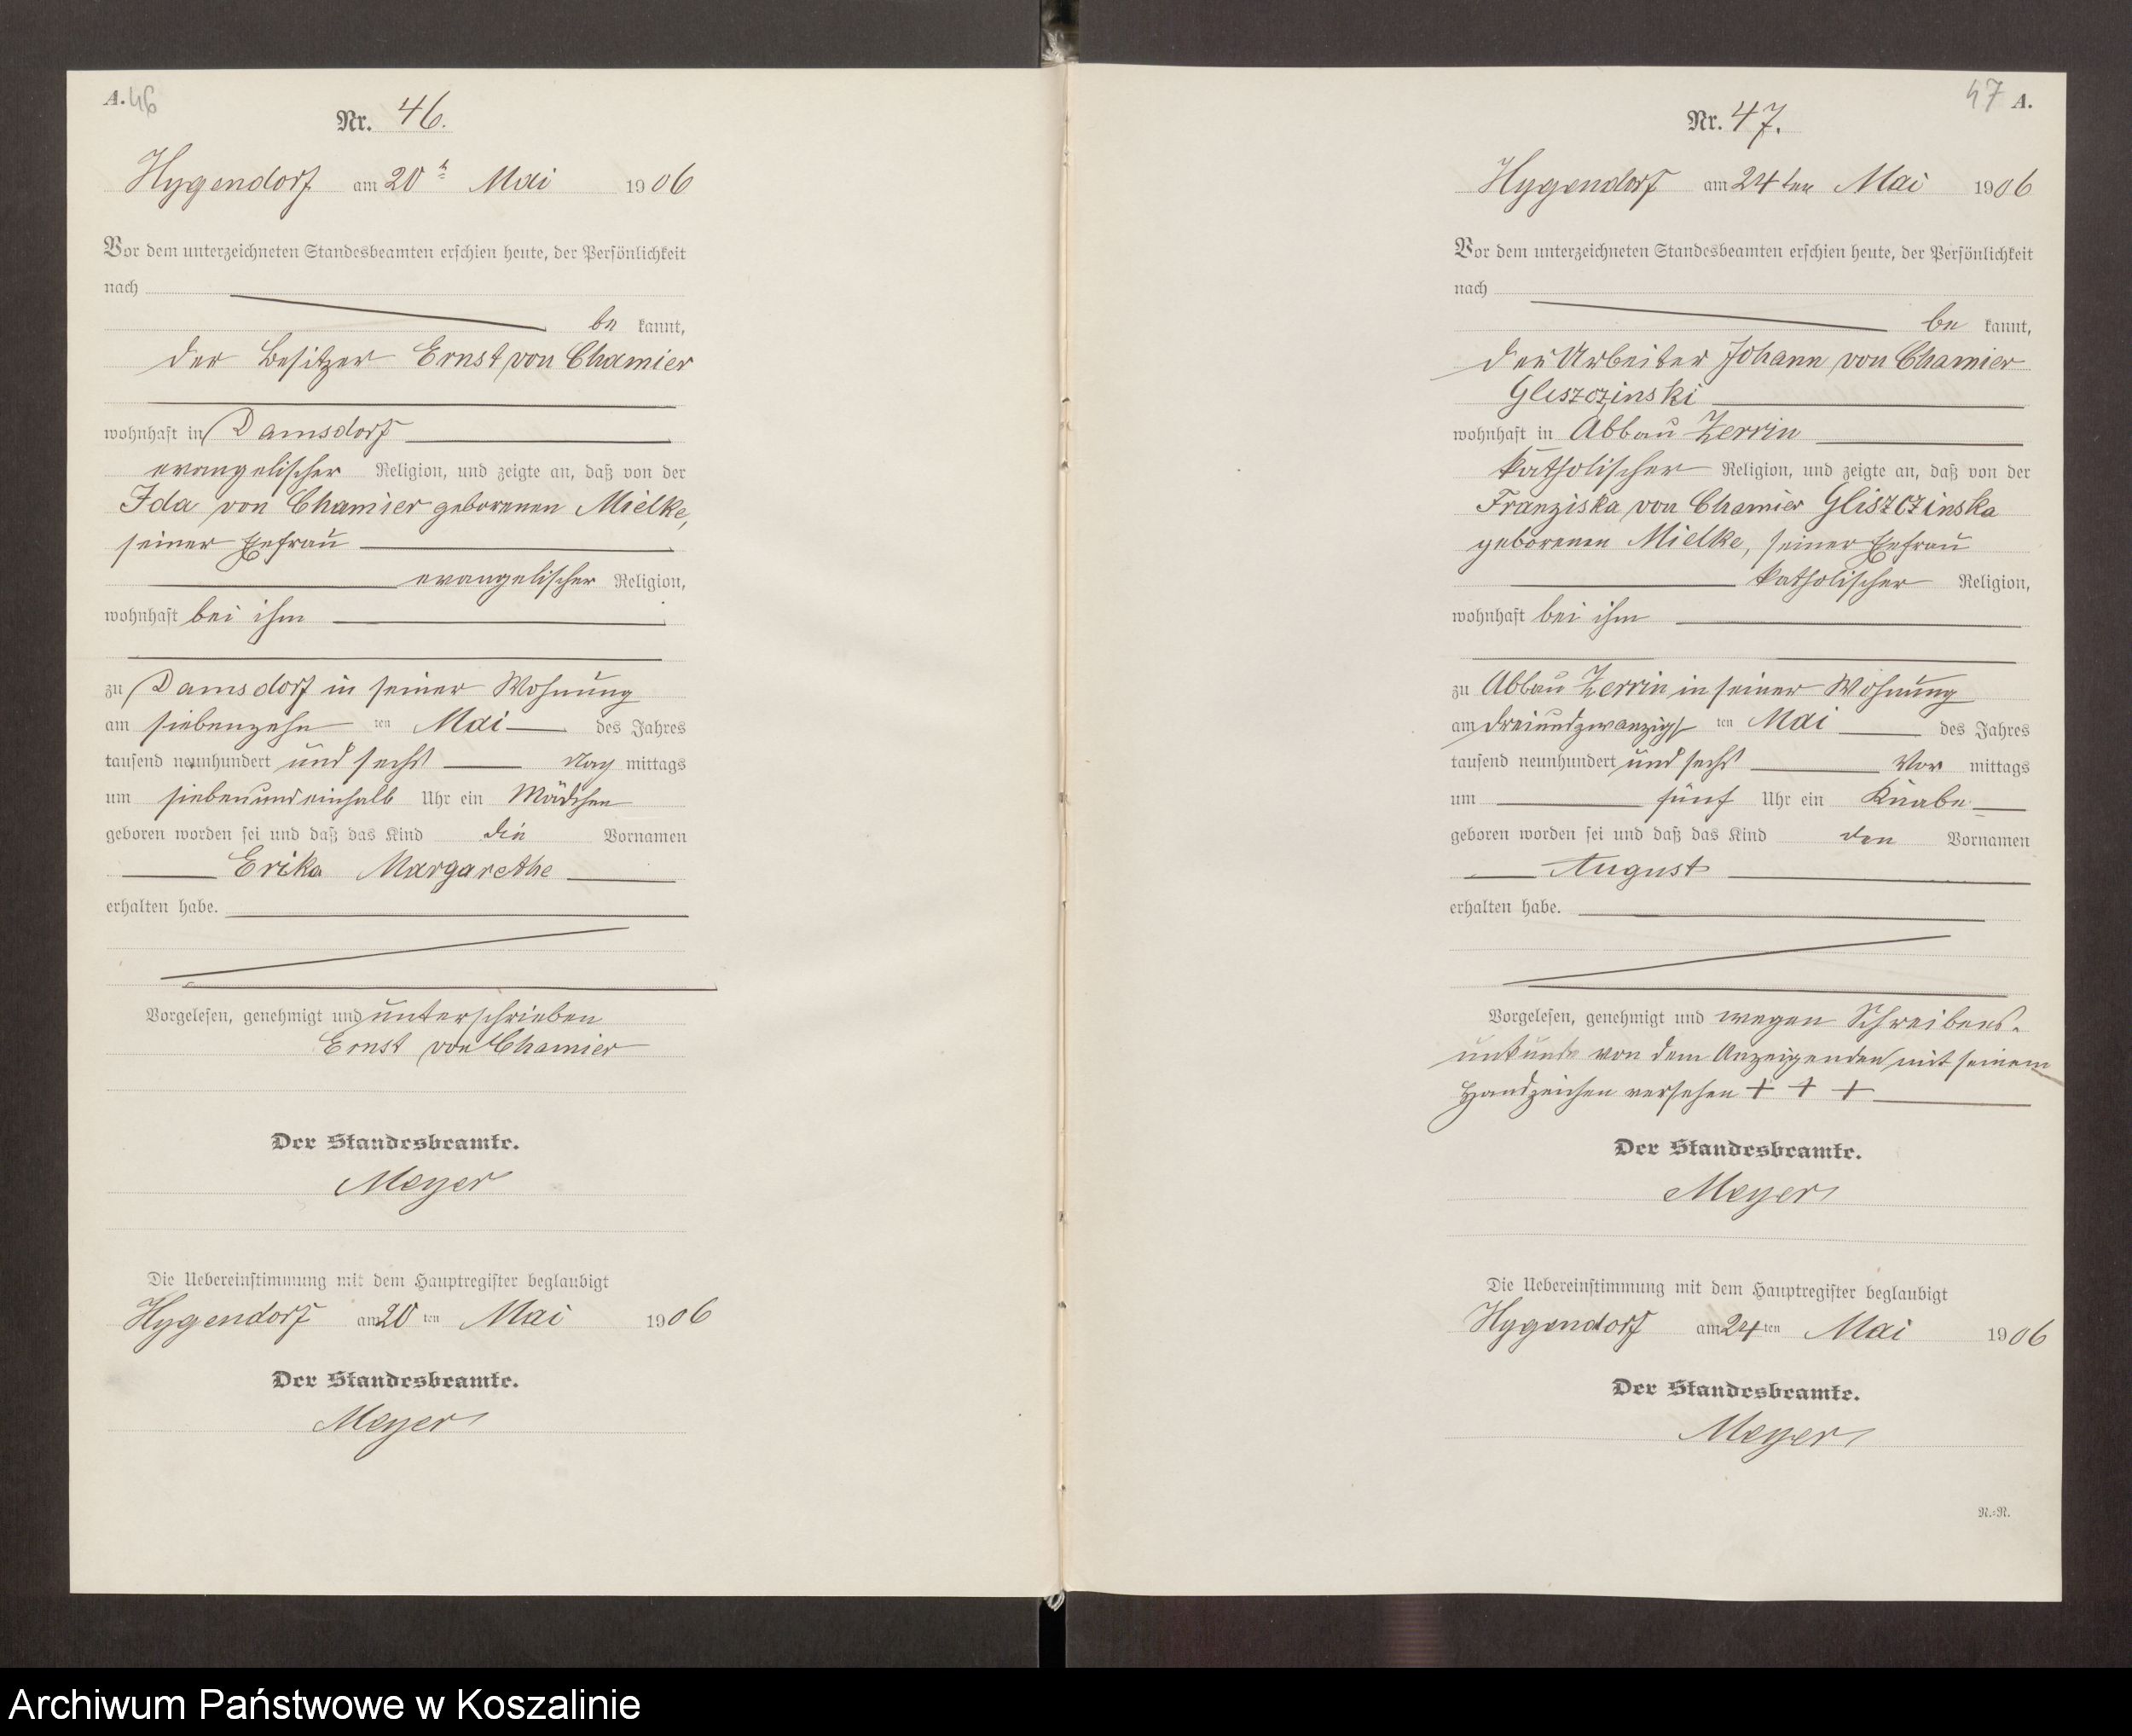 A. 46
Nr. 46.
Hygendorf am 20t Mai 1906
Vor dem unterzeichneten Standesbeamten erschien heute, der Persönlichkeit
nach
be kannt,
der Besitzer Ernst von Chamier
wohnhaft in Damsdorf
evangelischer Religion, und zeigte an, daß von der
Ida von Chamier geborenen Mielke,
seiner Ehefrau
evangelischer Religion,
wohnhaft bei ihm
zu Damsdorf in seiner Wohnung
am siebenzehn ten Mai des Jahres
tausend neunhundert und sechs Nach mittags
um siebenundeinhalb Uhr ein Mädchen
geboren worden sei und daß das Kind die Vornamen
Erika Margarethe
erhalten habe.
Vorgelesen, genehmigt und unterschrieben
Ernst von Chamier
Der Standesbeamte.
Meyer
Die Uebereinstimmung mit dem Hauptregister beglaubigt
Hygendorf am 20 ten Mai 1906
Der Standesbeamte.
Meyer
47 A.
Nr. 47.
Hygendorf am 24ten Mai 1906
Vor dem unterzeichneten Standesbeamten erschien heute, der Persönlichkeit
nach
be kannt,
der Arbeiter Johann von Chamier
Gliszczinski
wohnhaft in Abbau Zerrin
katholischer Religion, und zeigte an, daß von der
Franziska von Chamier Gliszczinska
geborenen Mielke, seiner Ehefrau
katholischer Religion,
wohnhaft bei ihm
zu Abbau Zerrin in seiner Wohnung
am dreiundzwanzigs ten Mai des Jahres
tausend neunhundert und sechs Vor mittags
um fünf Uhr ein Knabe
geboren worden sei und daß das Kind den Vornamen
August
erhalten habe.
Vorgelesen, genehmigt und wegen Schreibens-
unkunde von dem Anzeigenden mit seinem
Handzeichen versehen + + +
Der Standesbeamte.
Meyer
Die Uebereinstimmung mit dem Hauptregister beglaubigt
Hygendorf am 24 ten Mai 1906
Der Standesbeamte.
Meyer
N.=N.
Archiwum Państwowe w Koszalinie